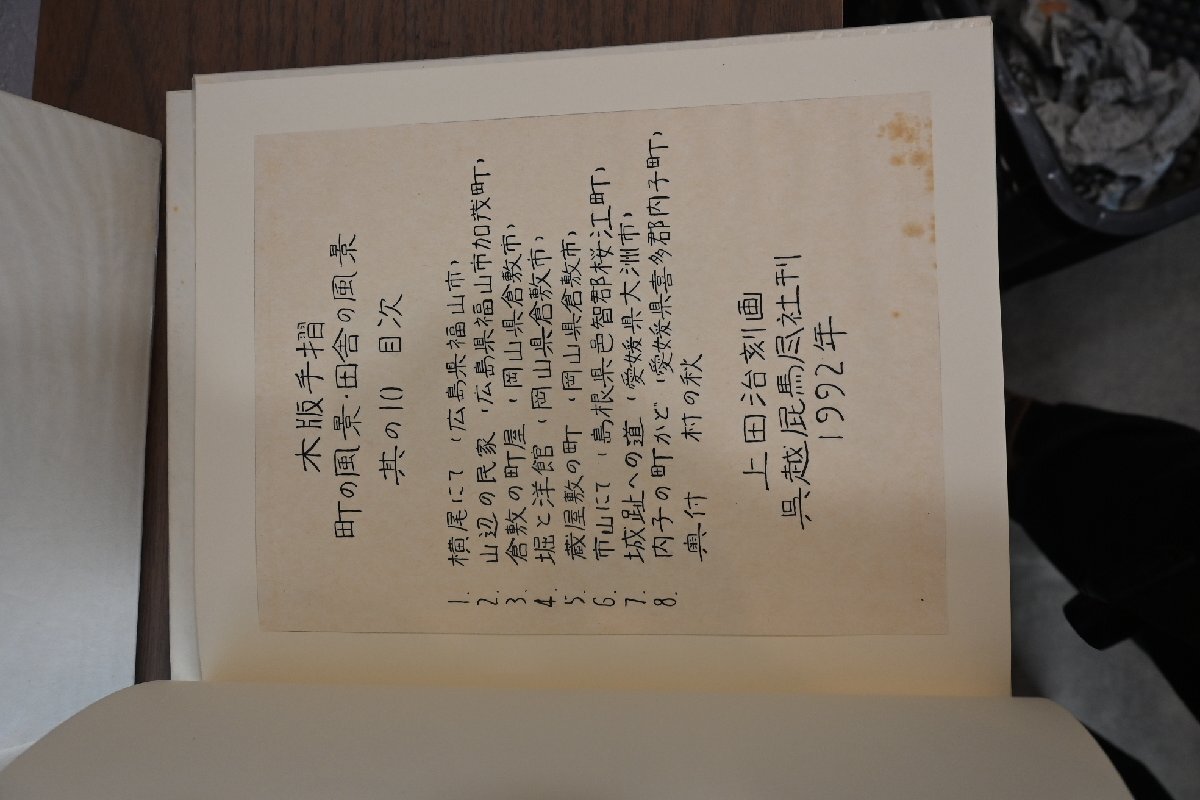 木版手摺
町の風景・田舎の風景
其の10 目次
1. 横尾にて (広島県福山市)
2. 山辺の民家 (広島県福山市加茂町)
3. 倉敷の町屋 (岡山県倉敷市)
4. 堀と洋館 (岡山県倉敷市)
5. 蔵屋敷の町 (岡山県倉敷市)
6. 市山にて (島根県邑智郡桜江町)
7. 城趾への道 (愛媛県大洲市)
8. 内子の町かど (愛媛県喜多郡内子町)
奥付 村の秋
上田治刻画
呉越屁馬尽社刊
1992年